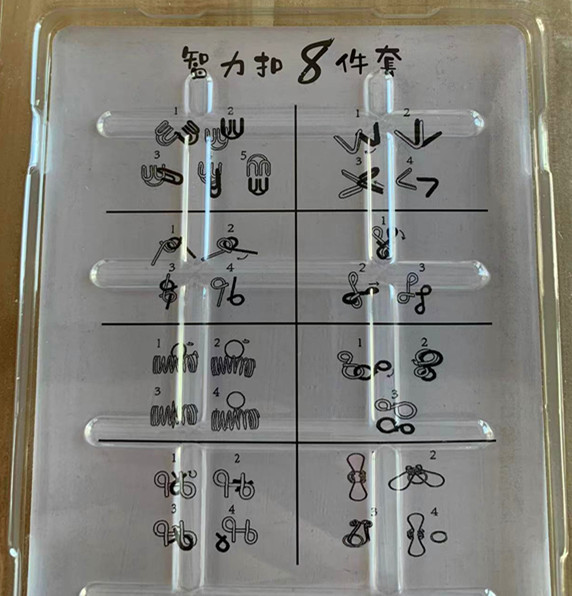 智力扣8件套
1 2
3 5
1 2
3 4
1 2
3 4
1
2 3
1 2
3 4
1 2
3
1 2
3 4
1 2
3 4